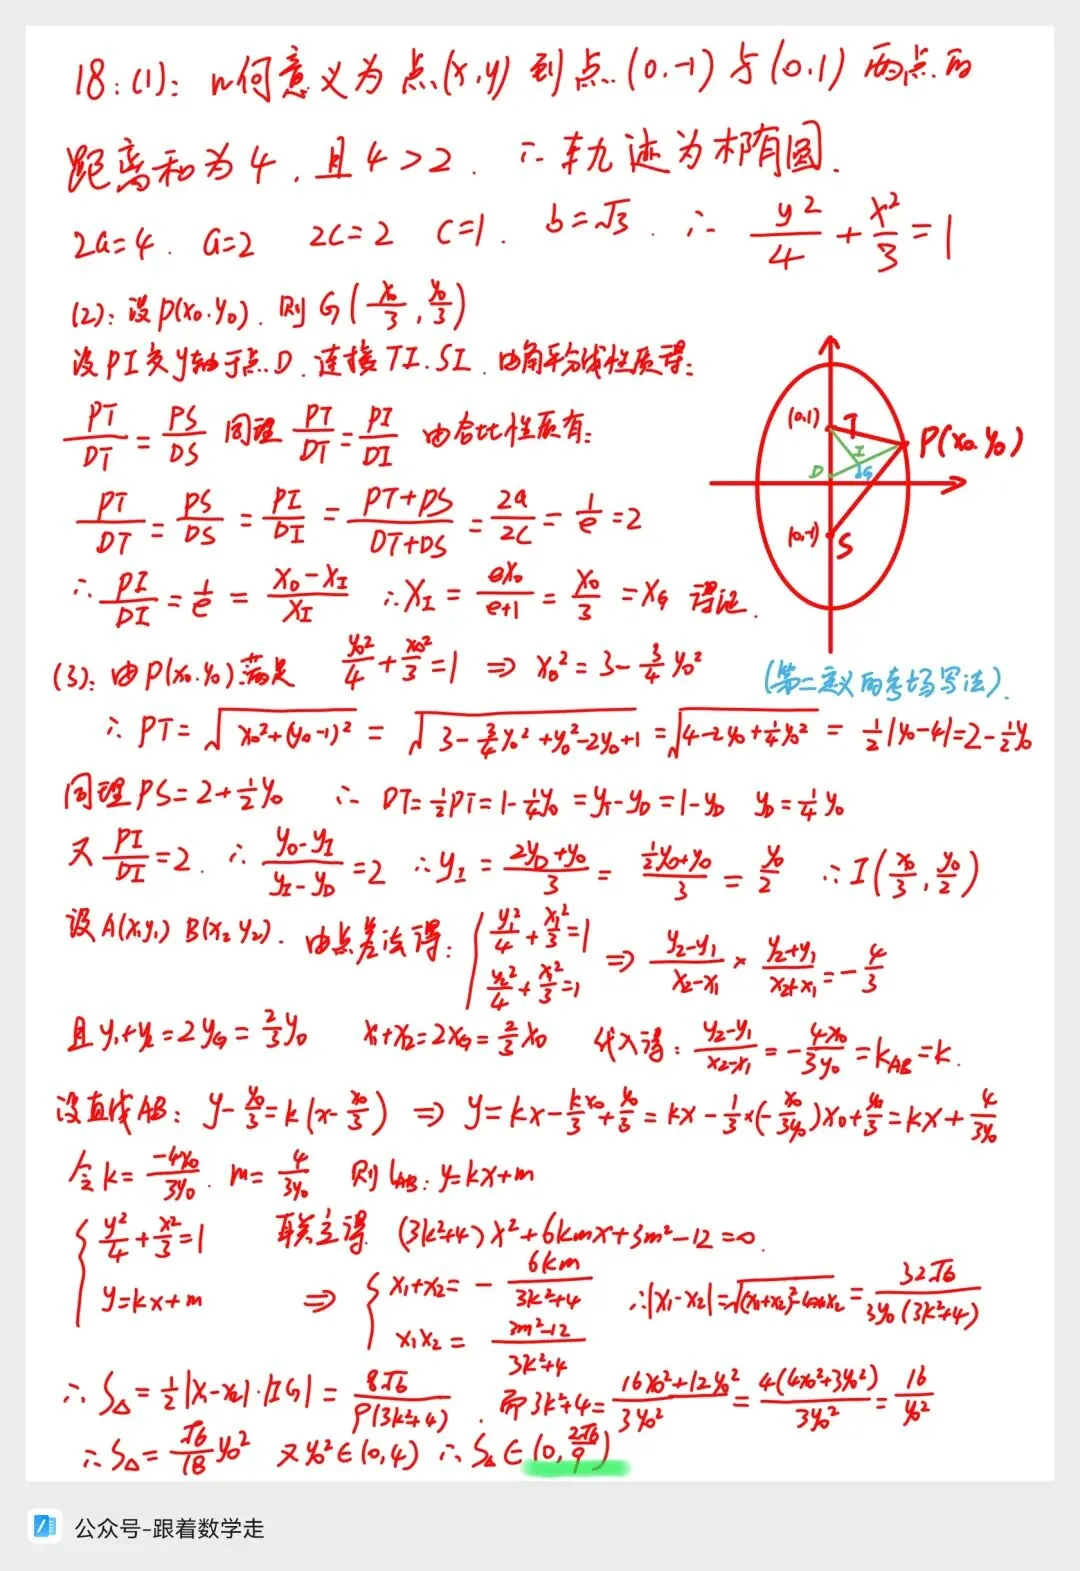 18:(1): 几何意义为点(x,y)到点(0,-1)与(0,1)两点的
距离和为4,且4>2. ∴轨迹为椭圆.
2a=4. a=2 2c=2 c=1. b=√3. ∴ y²/4 + x²/3 = 1
(2):设P(x₀.y₀). 则G(x₀/3, y₀/3)
设PI交y轴于点D.连接TI.SI.由角平分线性质得:
PT/DT = PS/DS 同理 PT/DT = PI/DI 由合比性质有:
PT/DT = PS/DS = PI/DI = (PT+PS)/(DT+DS) = 2a/2c = 1/e = 2
∴ PI/DI = 1/e = (x₀-x_I)/x_I ∴x_I = ex₀/(e+1) = x₀/3 = x_G 得证.
(0,1)
T
P(x₀.y₀)
I
D
G
(0,-1)
S
(第二定义的考场写法).
(3):由P(x₀.y₀)满足 y₀²/4 + x₀²/3 = 1 ⇒ x₀² = 3 - 3/4 y₀²
∴ PT = √(x₀²+(y₀-1)²) = √(3 - 3/4 y₀² + y₀² - 2y₀ + 1) = √(4 - 2y₀ + 1/4 y₀²) = 1/2 |y₀-4| = 2 - 1/2 y₀
同理PS = 2 + 1/2 y₀ ∴ DT = 1/2 PT = 1 - 1/4 y₀ = y_T - y_D = 1 - y_D y_D = 1/4 y₀
又 PI/DI = 2. ∴ (y₀-y_I)/(y_I-y_D) = 2 ∴y_I = (2y_D+y₀)/3 = (1/2 y₀+y₀)/3 = y₀/2 ∴I(x₀/3, y₀/2)
设A(x₁y₁) B(x₂ y₂). 由点差法得: { y₁²/4 + x₁²/3 = 1 y₂²/4 + x₂²/3 = 1 ⇒ (y₂-y₁)/(x₂-x₁) × (y₂+y₁)/(x₂+x₁) = -4/3
且y₁+y₂ = 2y_G = 2/3 y₀ x₁+x₂ = 2x_G = 2/3 x₀ 代入得: (y₂-y₁)/(x₂-x₁) = -4x₀/3y₀ = k_AB = k.
设直线AB: y - y₀/3 = k(x - x₀/3) ⇒ y = kx - kx₀/3 + y₀/3 = kx - 1/3 ×(-x₀/3y₀)x₀ + y₀/3 = kx + 4/3y₀
令k = -4x₀/3y₀. m = 4/3y₀ 则l_AB: y = kx+m
{ y²/4 + x²/3 = 1 联立得. (3k²+4)x² + 6kmx + 3m² - 12 = 0.
y = kx+m ⇒ { x₁+x₂ = - 6km/(3k²+4) x₁x₂ = (3m²-12)/(3k²+4) ∴|x₁-x₂| = √((x₁+x₂)²-4x₁x₂) = 32√6/(3y₀(3k²+4))
∴ S△ = 1/2 |x₁-x₂|·|IG| = 8√6/(9(3k²+4)). 而3k²+4 = (16x₀²+12y₀²)/3y₀² = 4(4x₀²+3y₀²)/3y₀² = 16/y₀²
∴S△ = √6/18 y₀² 又y₀²∈(0,4) ∴S△∈(0, 2√6/9)
公众号-跟着数学走